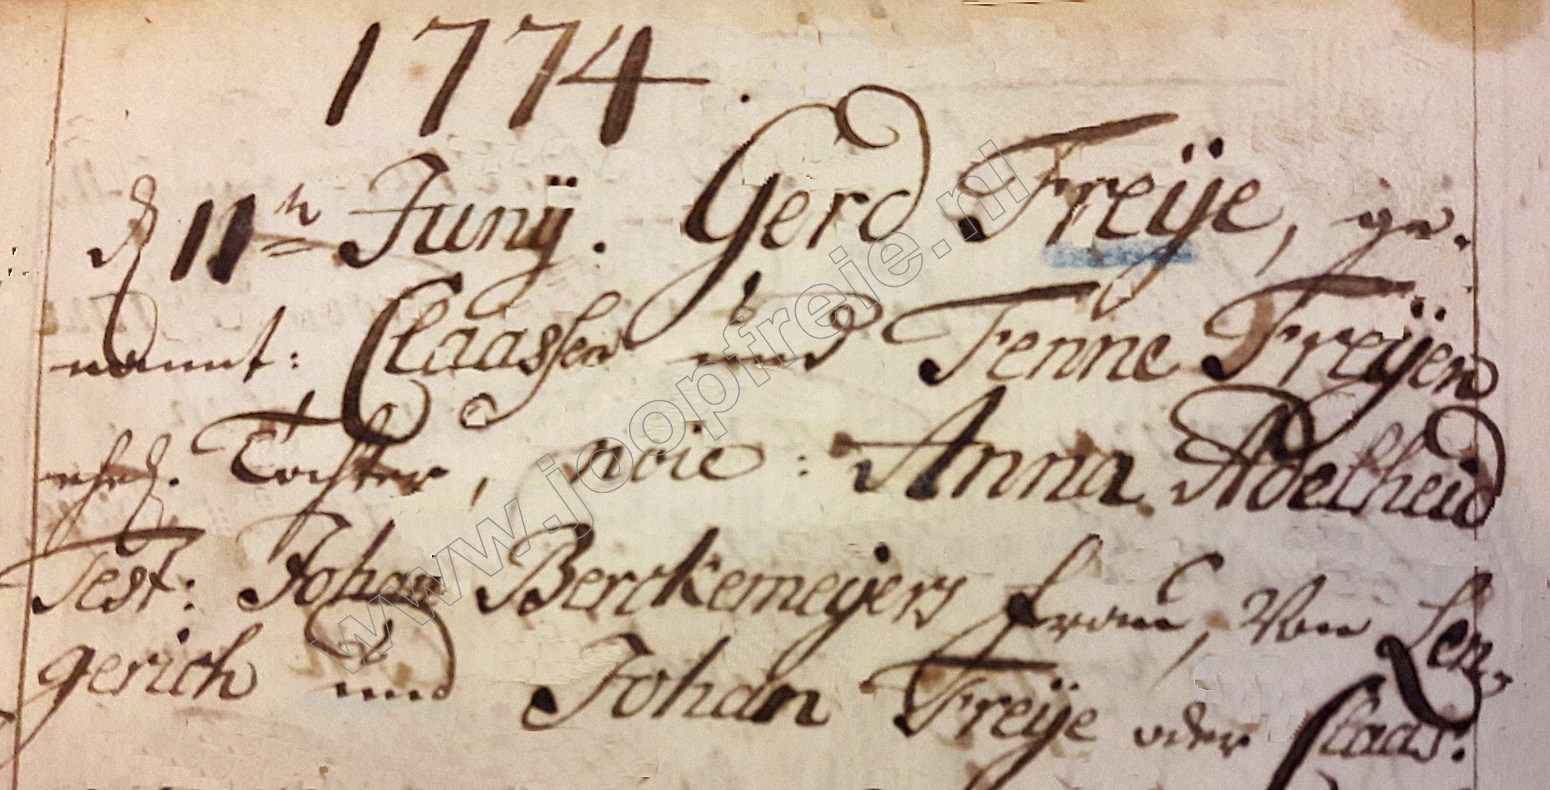 1774.
d 11th Junÿ. Gerd Freÿe, ge-
nannt: Claassen und Fenne Freÿen
ehel. Tochter, noie: Anna Adelheid
Test: Johan Berckemeÿers frau, von Len-
gerich und Johan Freÿe oder Claas:
www.joopfreije.nl